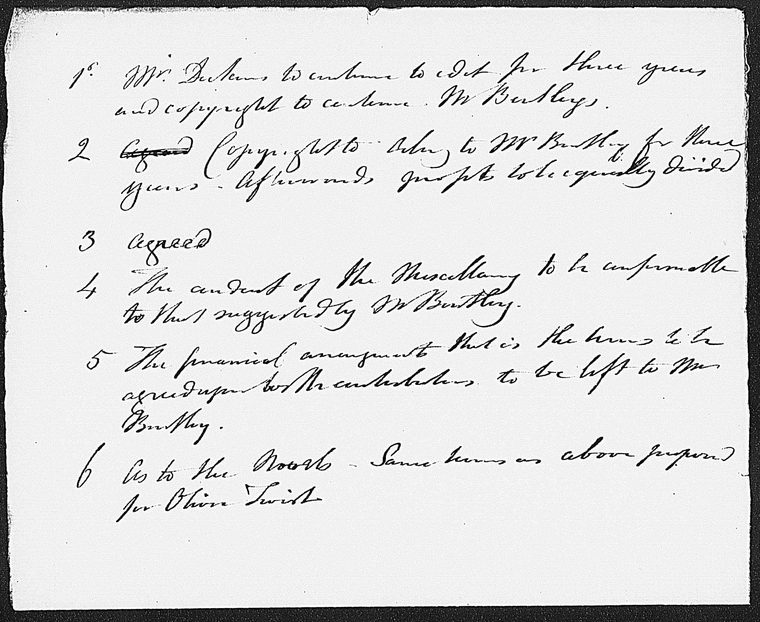 1st Mr. Dickens to continue to edit for three years
and copyright to continue Mr Bentleys.
2 agreed Copyright to belong to Mr Bentley for three
years - afterwards profits to be equally divided
3 agreed
4 The conduct of the Miscellany to be conformable
to that suggested by Mr Bentley.
5 The financial arrangements that is the terms to be
agreed upon with contributors to be left to Mr
Bentley.
6 As to the Novels - Same terms as above proposed
for Oliver Twist